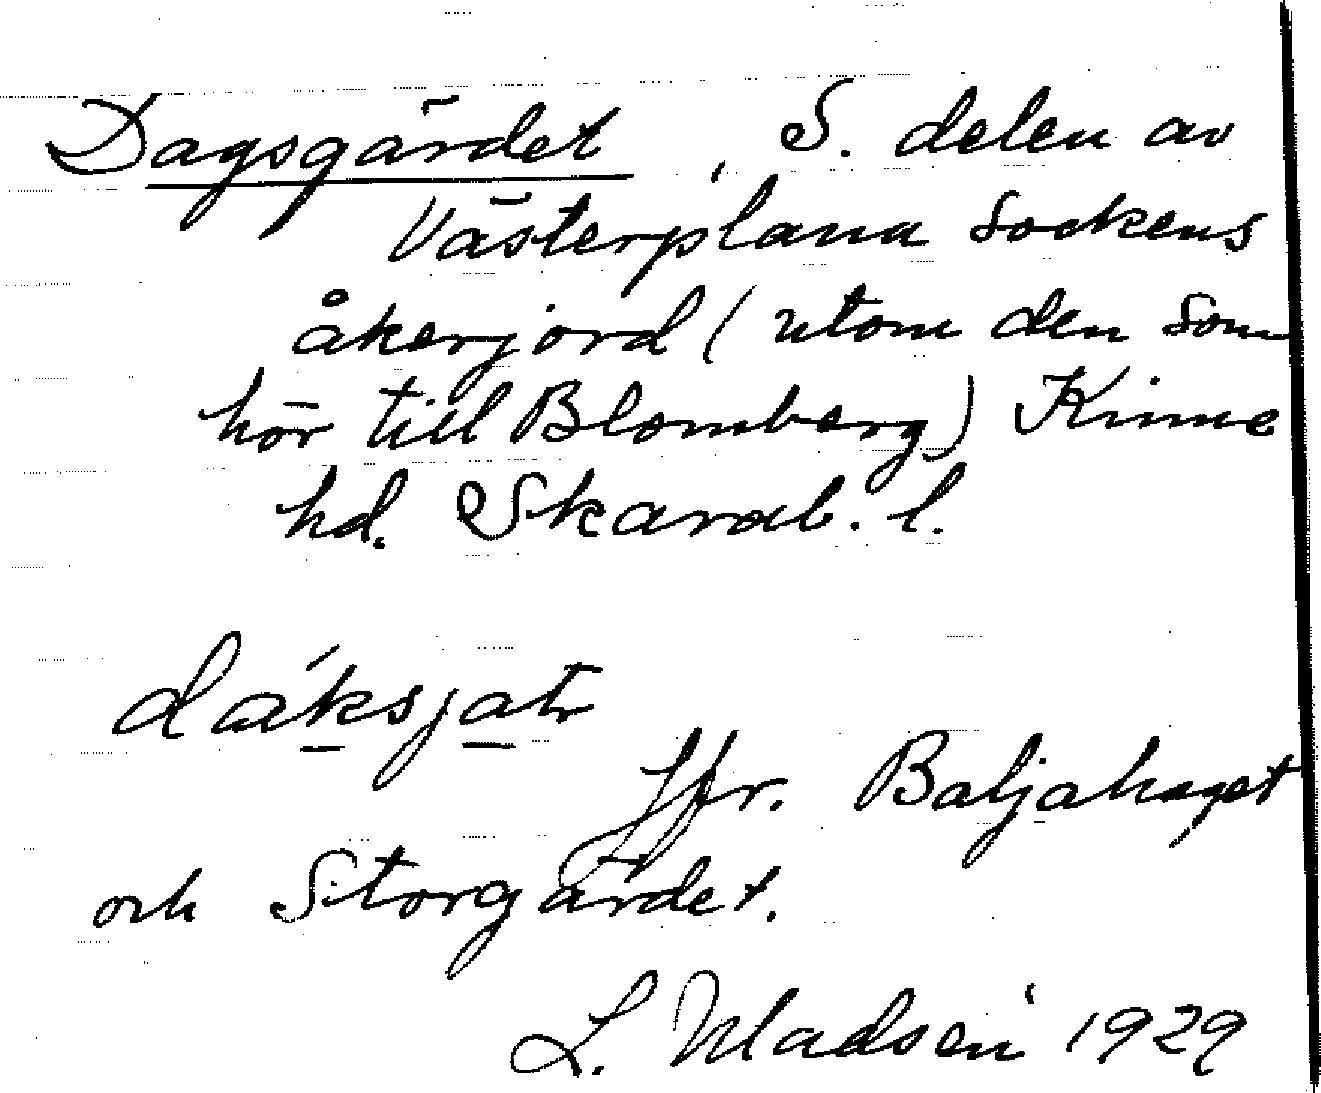 Dagsgärdet, S. delen av
Västerplana sockens
åkerjord (utom den som
hör till Blomberg) Kinne
hd. Skarab. l.
dáksjat
Jfr. Baljahaget
och Storgärdet.
L. Madsén 1929